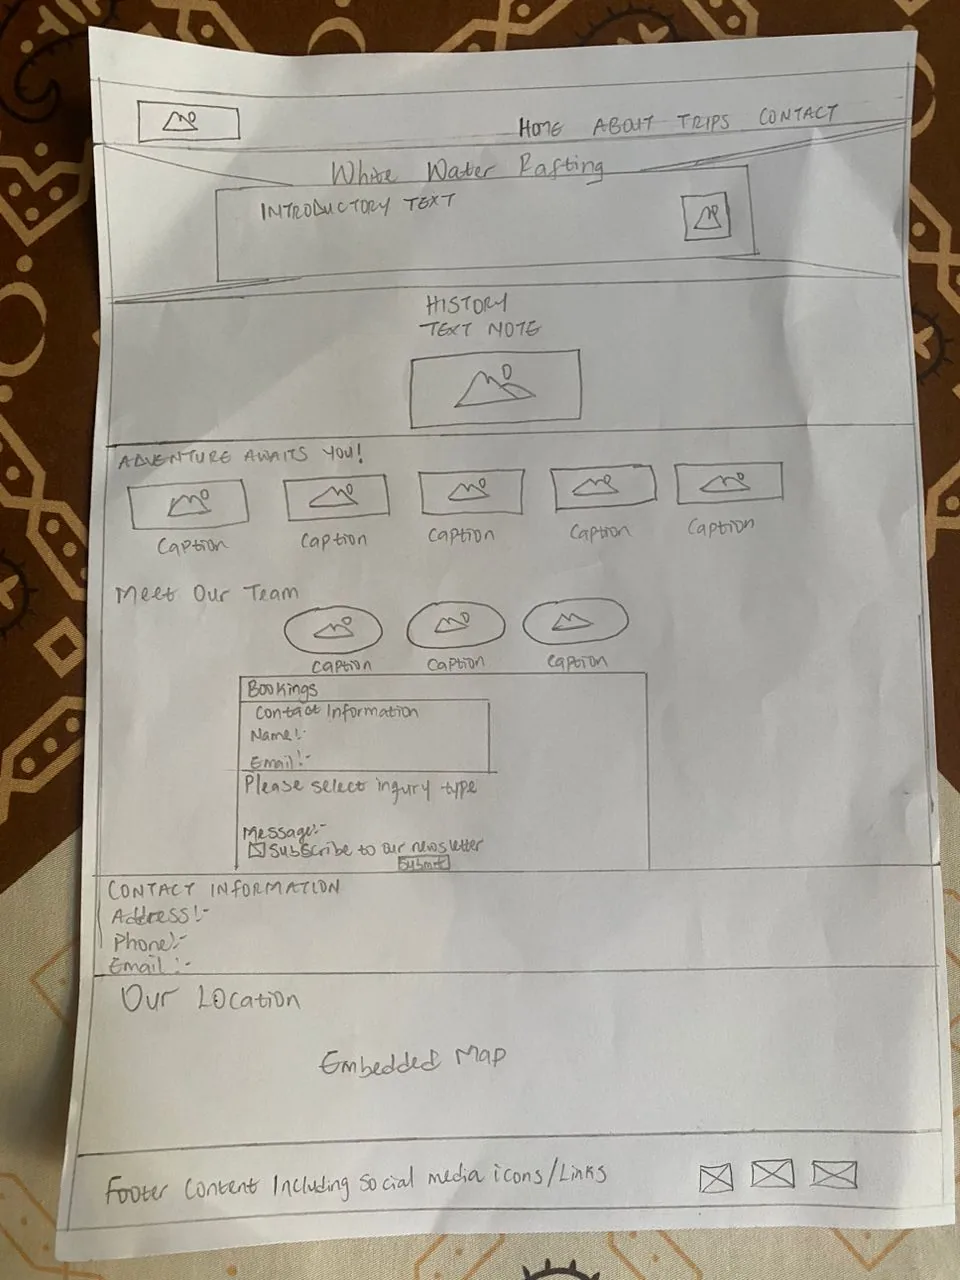 HOME ABOUT TRIPS CONTACT
White Water Rafting
INTRODUCTORY TEXT
HISTORY
TEXT NOTE
ADVENTURE AWAITS YOU!
Caption Caption Caption Caption Caption
Meet Our Team
Caption Caption Caption
Bookings
Contact Information
Name:-
Email:-
Please select ingury type
Message:-
Subscribe to our newsletter
Submit
CONTACT INFORMATION
Address:-
Phone:-
Email:-
Our Location
Embedded Map
Footer Content Including Social media icons/Links